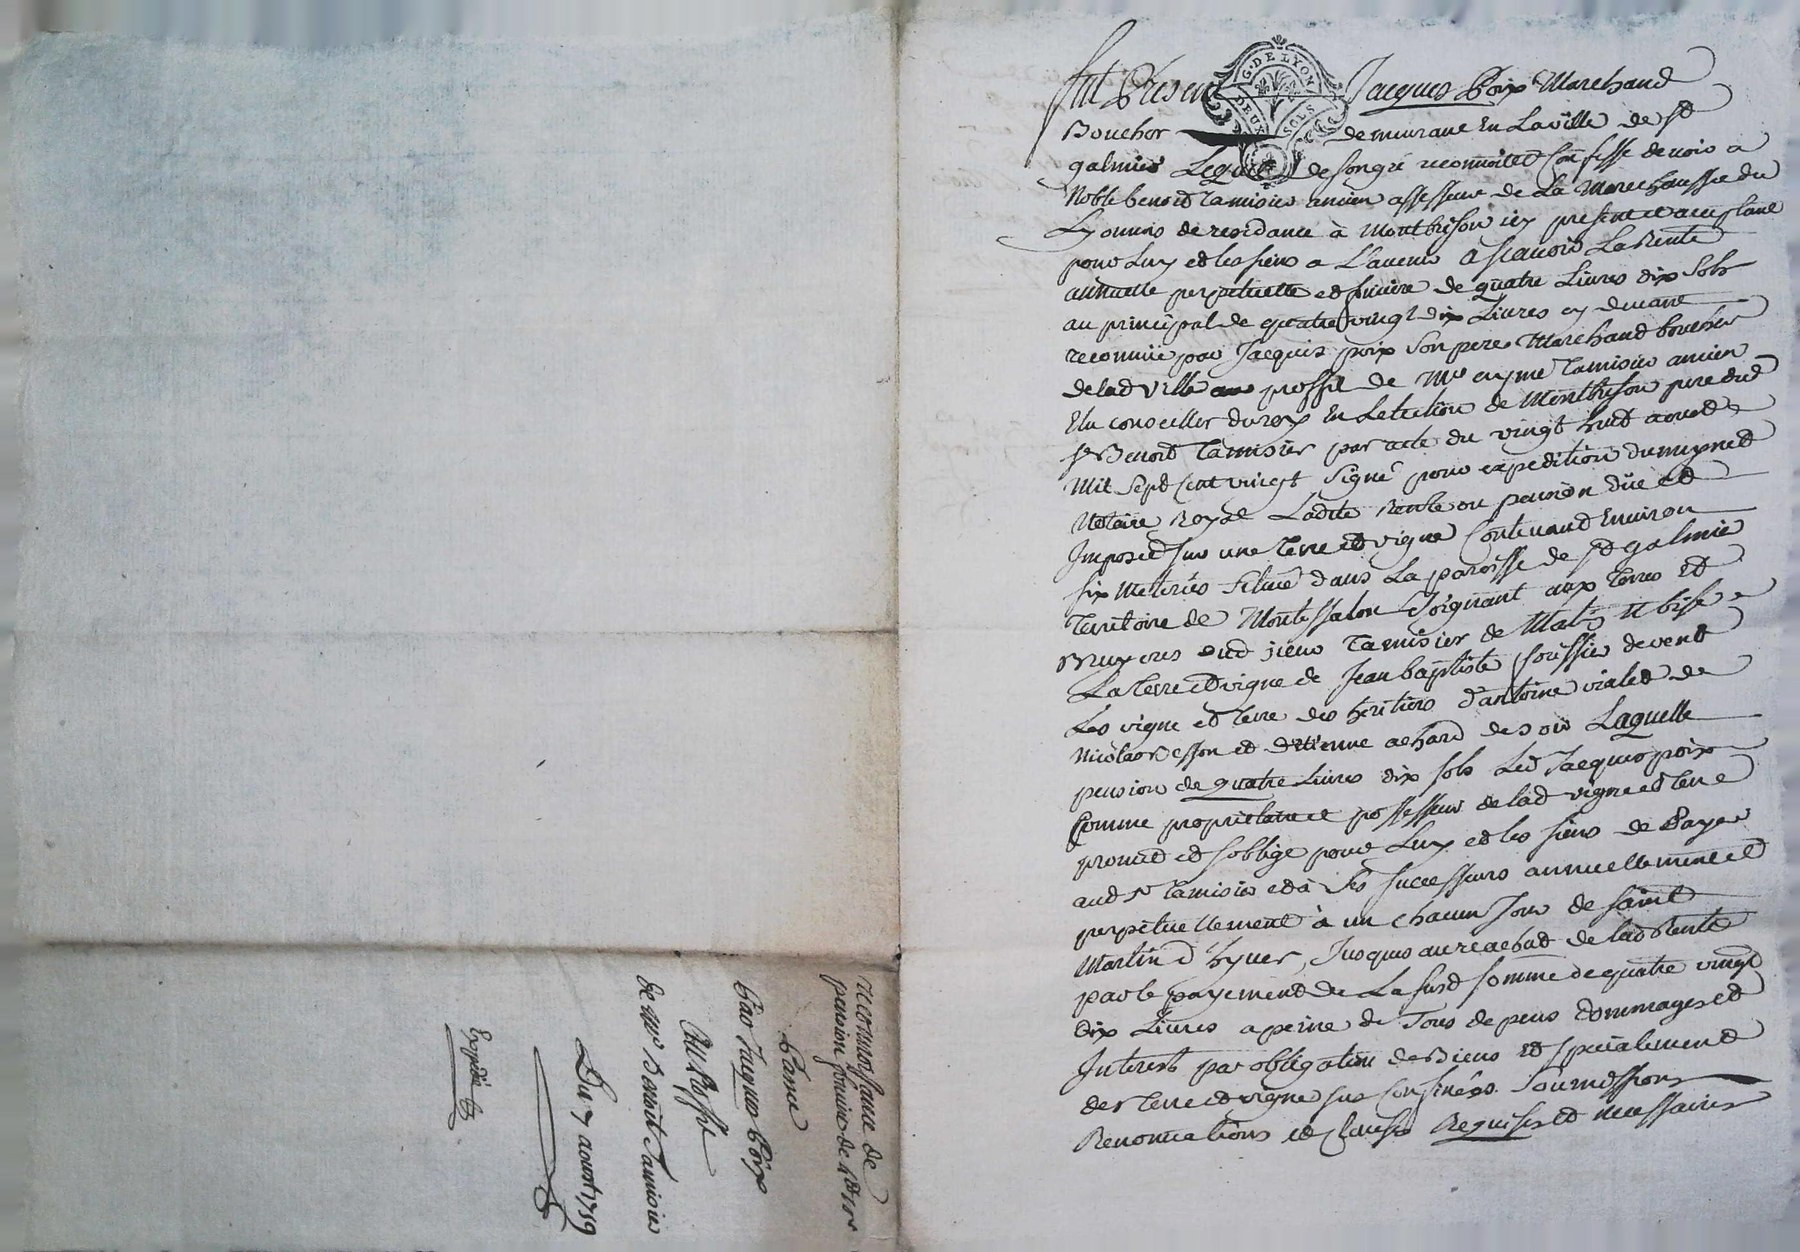 Fut Présent Jacques Poix Marchand
Boucher demeurant En La ville de St
galmier Lequel de son gré reconnoit et Confesse devoir a
Noble benoit Tamisier ancien assesseur de La Marechaussée du
Lyonnois de residance à Montbrison icy present et acceptant
pour Luy et les siens a L'avenir a scavoir La Rente
annuelle perpetuelle et fonciere de quatre Livres dix Sols
au principal de quatre vingt dix Livres cy devant
reconnüe par Jacques poix Son pere Marchand boucher
de lad ville au proffit de Me aymé Tamisier ancien
Elu conseiller du roy En Letection de Montbrison pere dud
sr Benoit Tamisier par acte du vingt huit aoust
Mil Sept Cent vingt Signé pour expedition dumeynet
Notaire Royal Ladite Rente ou pension düe et
Imposée sur une Terre et vigne Contenant Environ
six Meterées située dans La paroisse de St galmier
Territoire de Montessalon Joignant aux Terres et
Bruyeres dud sieur Tamisier de Matin et bise
La Terre et vigne de Jean baptiste de vent
Les vigne et Terre des heritiers d'antoine vialet de
Nicolas et d'étienne achard de soir Laquelle
pension de quatre Livres dix sols Led Jacques poix
Comme proprietaire et possesseur de lad vigne et Terre
promet et s'oblige pour Luy et les siens de Payer
aud sr Tamisier et à ses successeurs annuellement et
perpetuellement à un chacun Jour de saint
Martin d'hyver, Jusques au reachat de lad Rente
par le payement de La susd somme de quatre vingt
dix Livres a peine de Tous depens dommages et
Interests par obligation de Biens et specialement
des Terre et vigne sus Confinées Soumissions
Renonciations et Clauses Requises et necessaires
G. DE LYON
DEUX SOLS
reconnoissance de
pension fonciere de 4lt 10s
Par Jacques Poix
Au Proffit
de Me Benoit Tamisier
Du 7 aoust 1759
Expédié